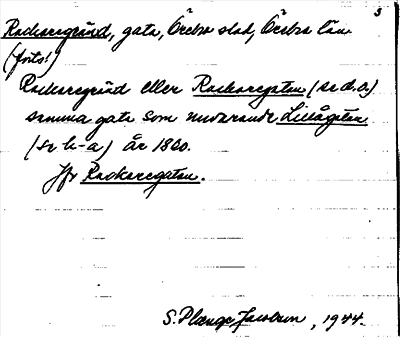 3
Rackaregränd, gata, Örebro stad, Örebro län
(forts!)
Rackaregränd eller Rackaregatan (se d.o.)
samma gata som nuvarande Lillågatan
(se h-a) år 1860.
Jfr Rackaregatan.
S. Plænge Jacobson, 1944.